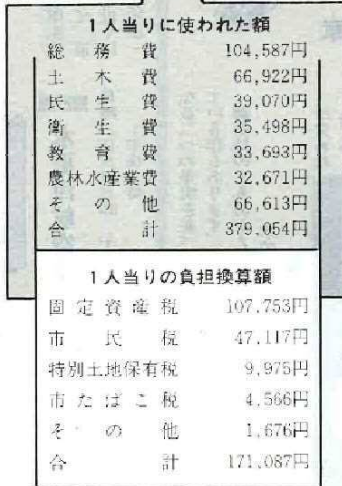 1人当りに使われた額
総務費 104,587円
土木費 66,922円
民生費 39,070円
衛生費 35,498円
教育費 33,693円
農林水産業費 32,671円
その他 66,613円
合計 379,054円
1人当りの負担換算額
固定資産税 107,753円
市民税 47,117円
特別土地保有税 9,975円
市たばこ税 4,566円
その他 1,676円
合計 171,087円